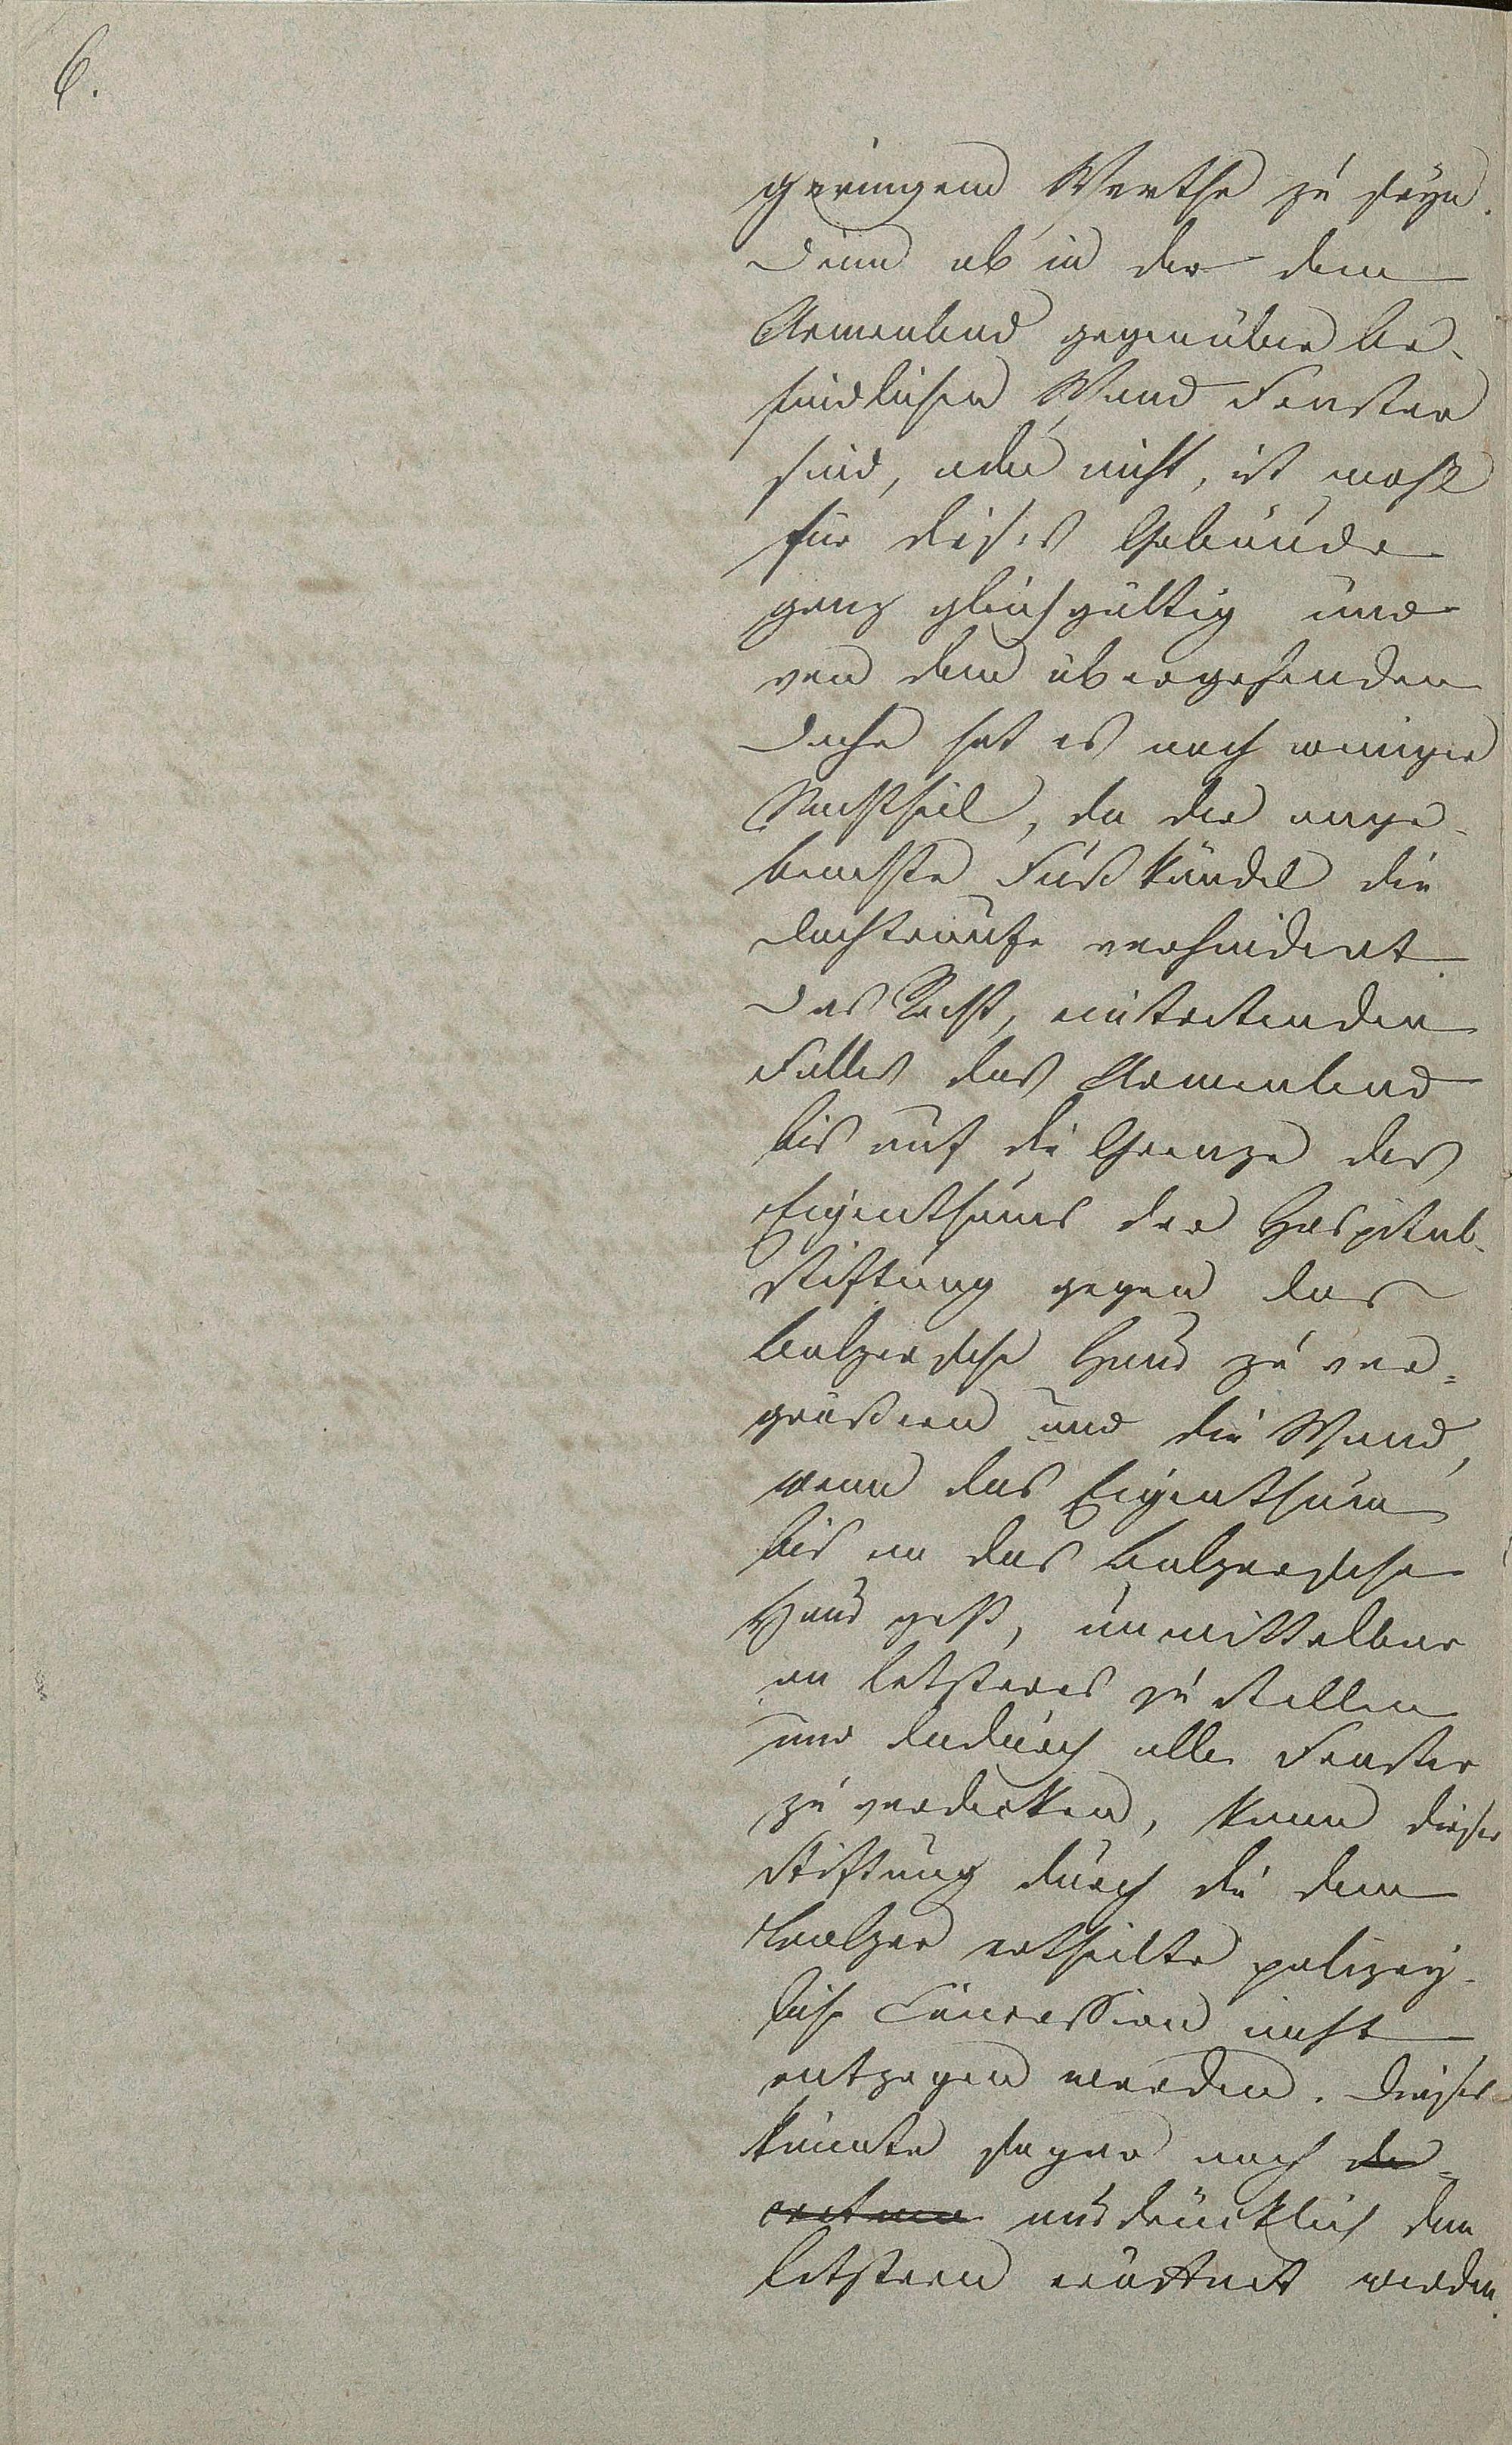 6.
geringem Werthe zu seyn.
Denn ob in der dem
Armenbad gegenüber be-
findlichen Wand Fenster
sind, oder nicht, ist wohl
für dieses Gebäude
ganz gleichgültig und
von dem übergehenden
Dache hat es noch weniger
Nachtheil, da die ange-
brachte Fußkändel die
Dachtraufe verhindert.
Das Recht, eintretenden
Falles das Armenbad
bis auf die Grenze des
Eigenthums der Hospital-
stiftung gegen das
Balzersche Haus zu ver=
größern und die Wand,
wenn das Eigenthum
bis an das Balzersche
Haus geht, unmittelbar
an letzteres zu stellen
und dadurch alle Fenster
zu verdecken, kann dieser
Stiftung durch die dem
Balzer ertheilte polizey-
lich Concession nicht
entzogen werden. Dieses
könnte sogar noch
ausdrücklich dem
letztern eröffnet werden.